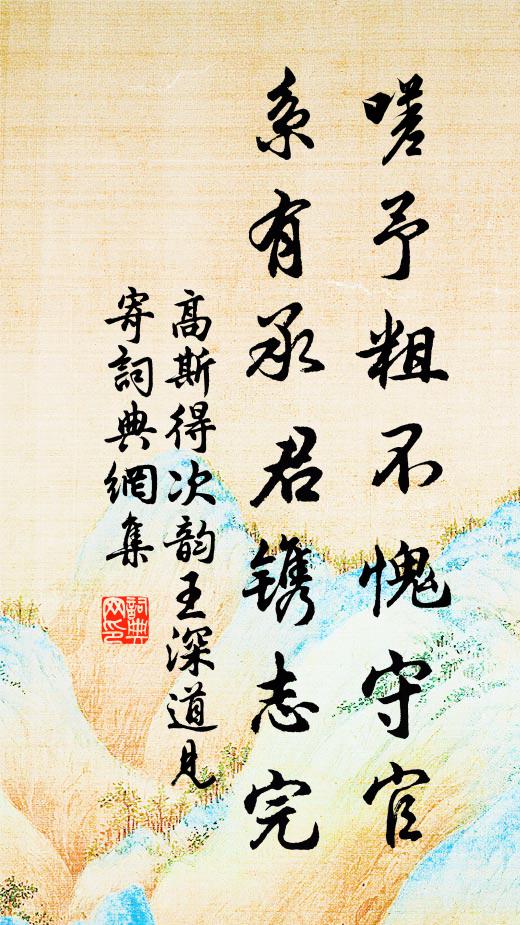 嗟予粗不愧守官
系有承君镌志完
高斯得次韵王深道见
寄詞典網集
詞典网印